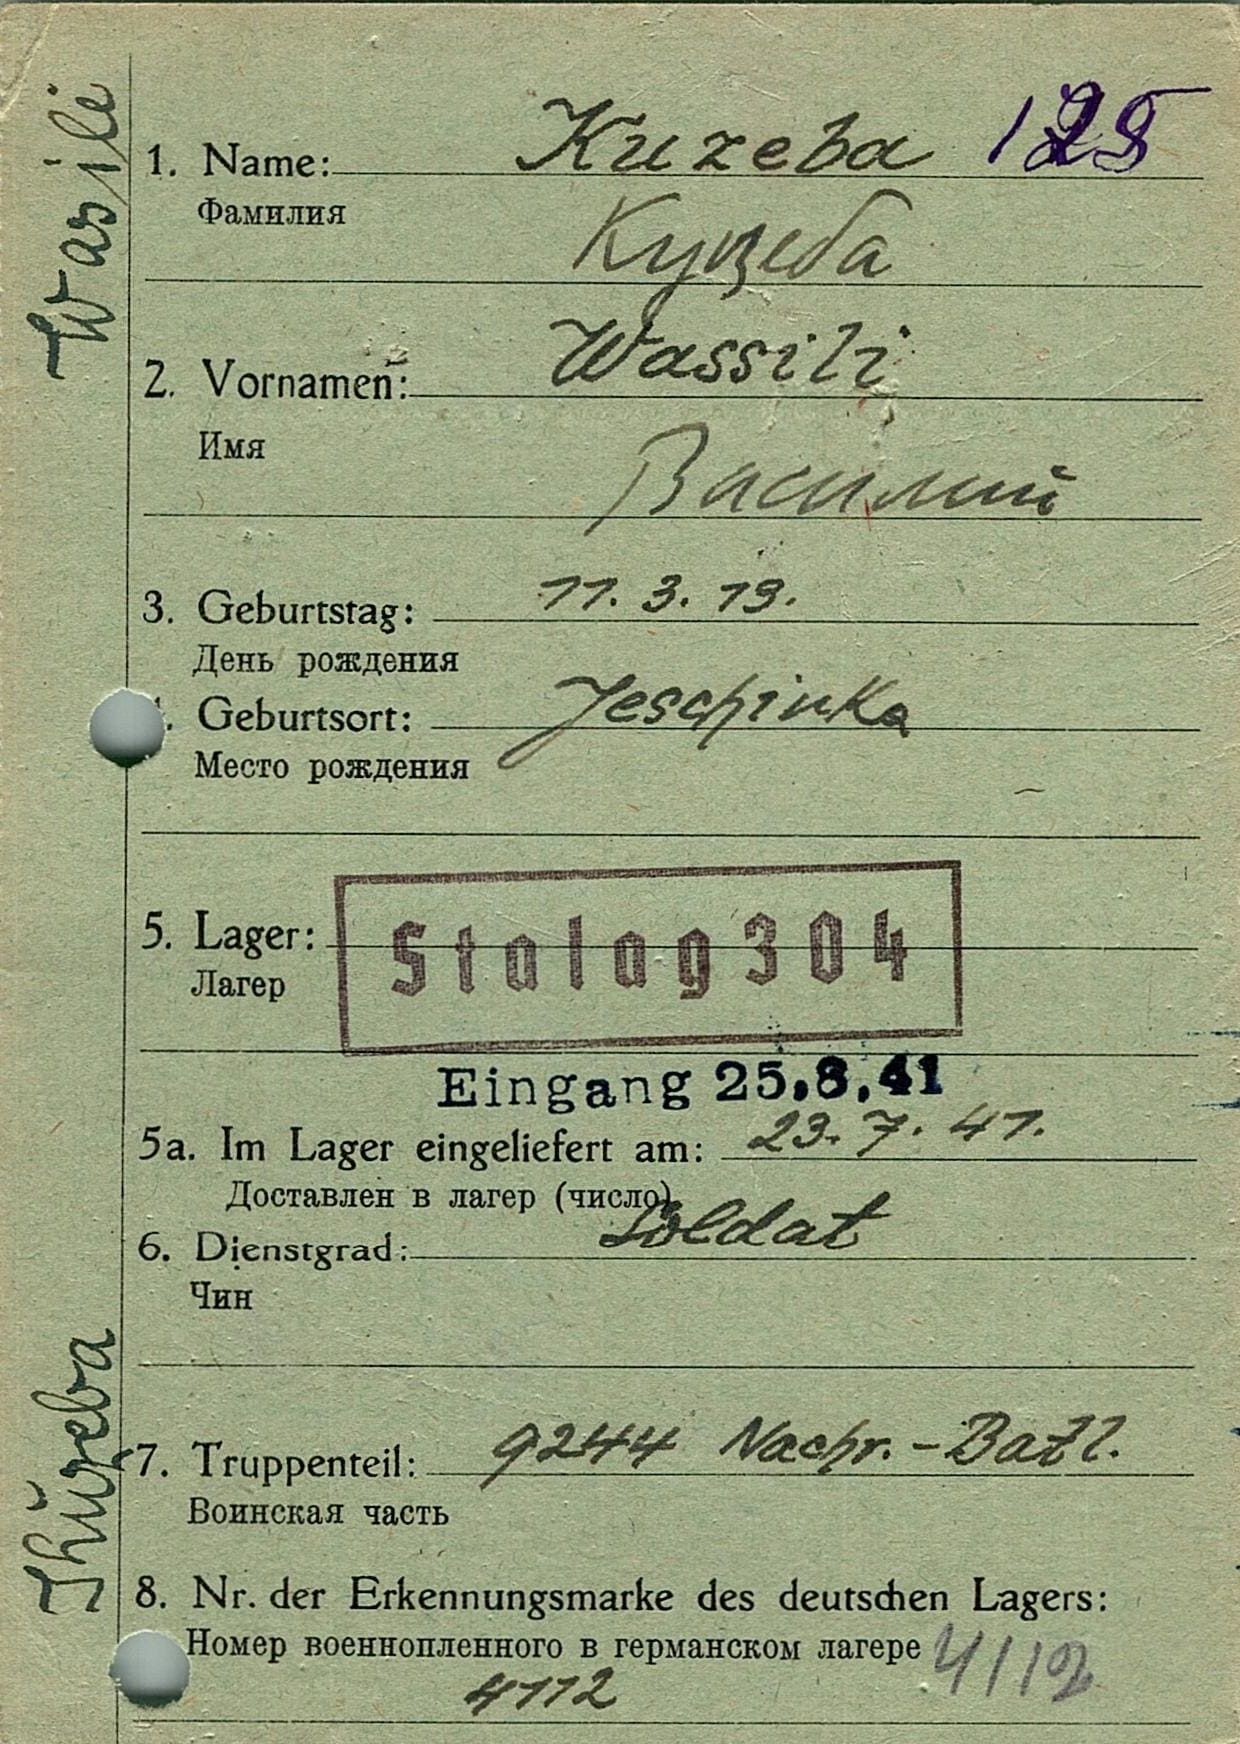 Wasili
1. Name: Kuzeba 125
Фамилия
Куцеба
2. Vornamen: Wassili
Имя
Василий
3. Geburtstag: 11. 3. 19.
День рождения
4. Geburtsort: Jeschinka
Место рождения
5. Lager: Stalag 304
Лагер
Eingang 25.8.41
5a. Im Lager eingeliefert am: 23. 7. 41.
Доставлен в лагер (число)
6. Dienstgrad: Soldat
Чин
7. Truppenteil: 9244 Nachr.-Batl.
Воинская часть
8. Nr. der Erkennungsmarke des deutschen Lagers:
Номер военнопленного в германском лагере 4112
4112